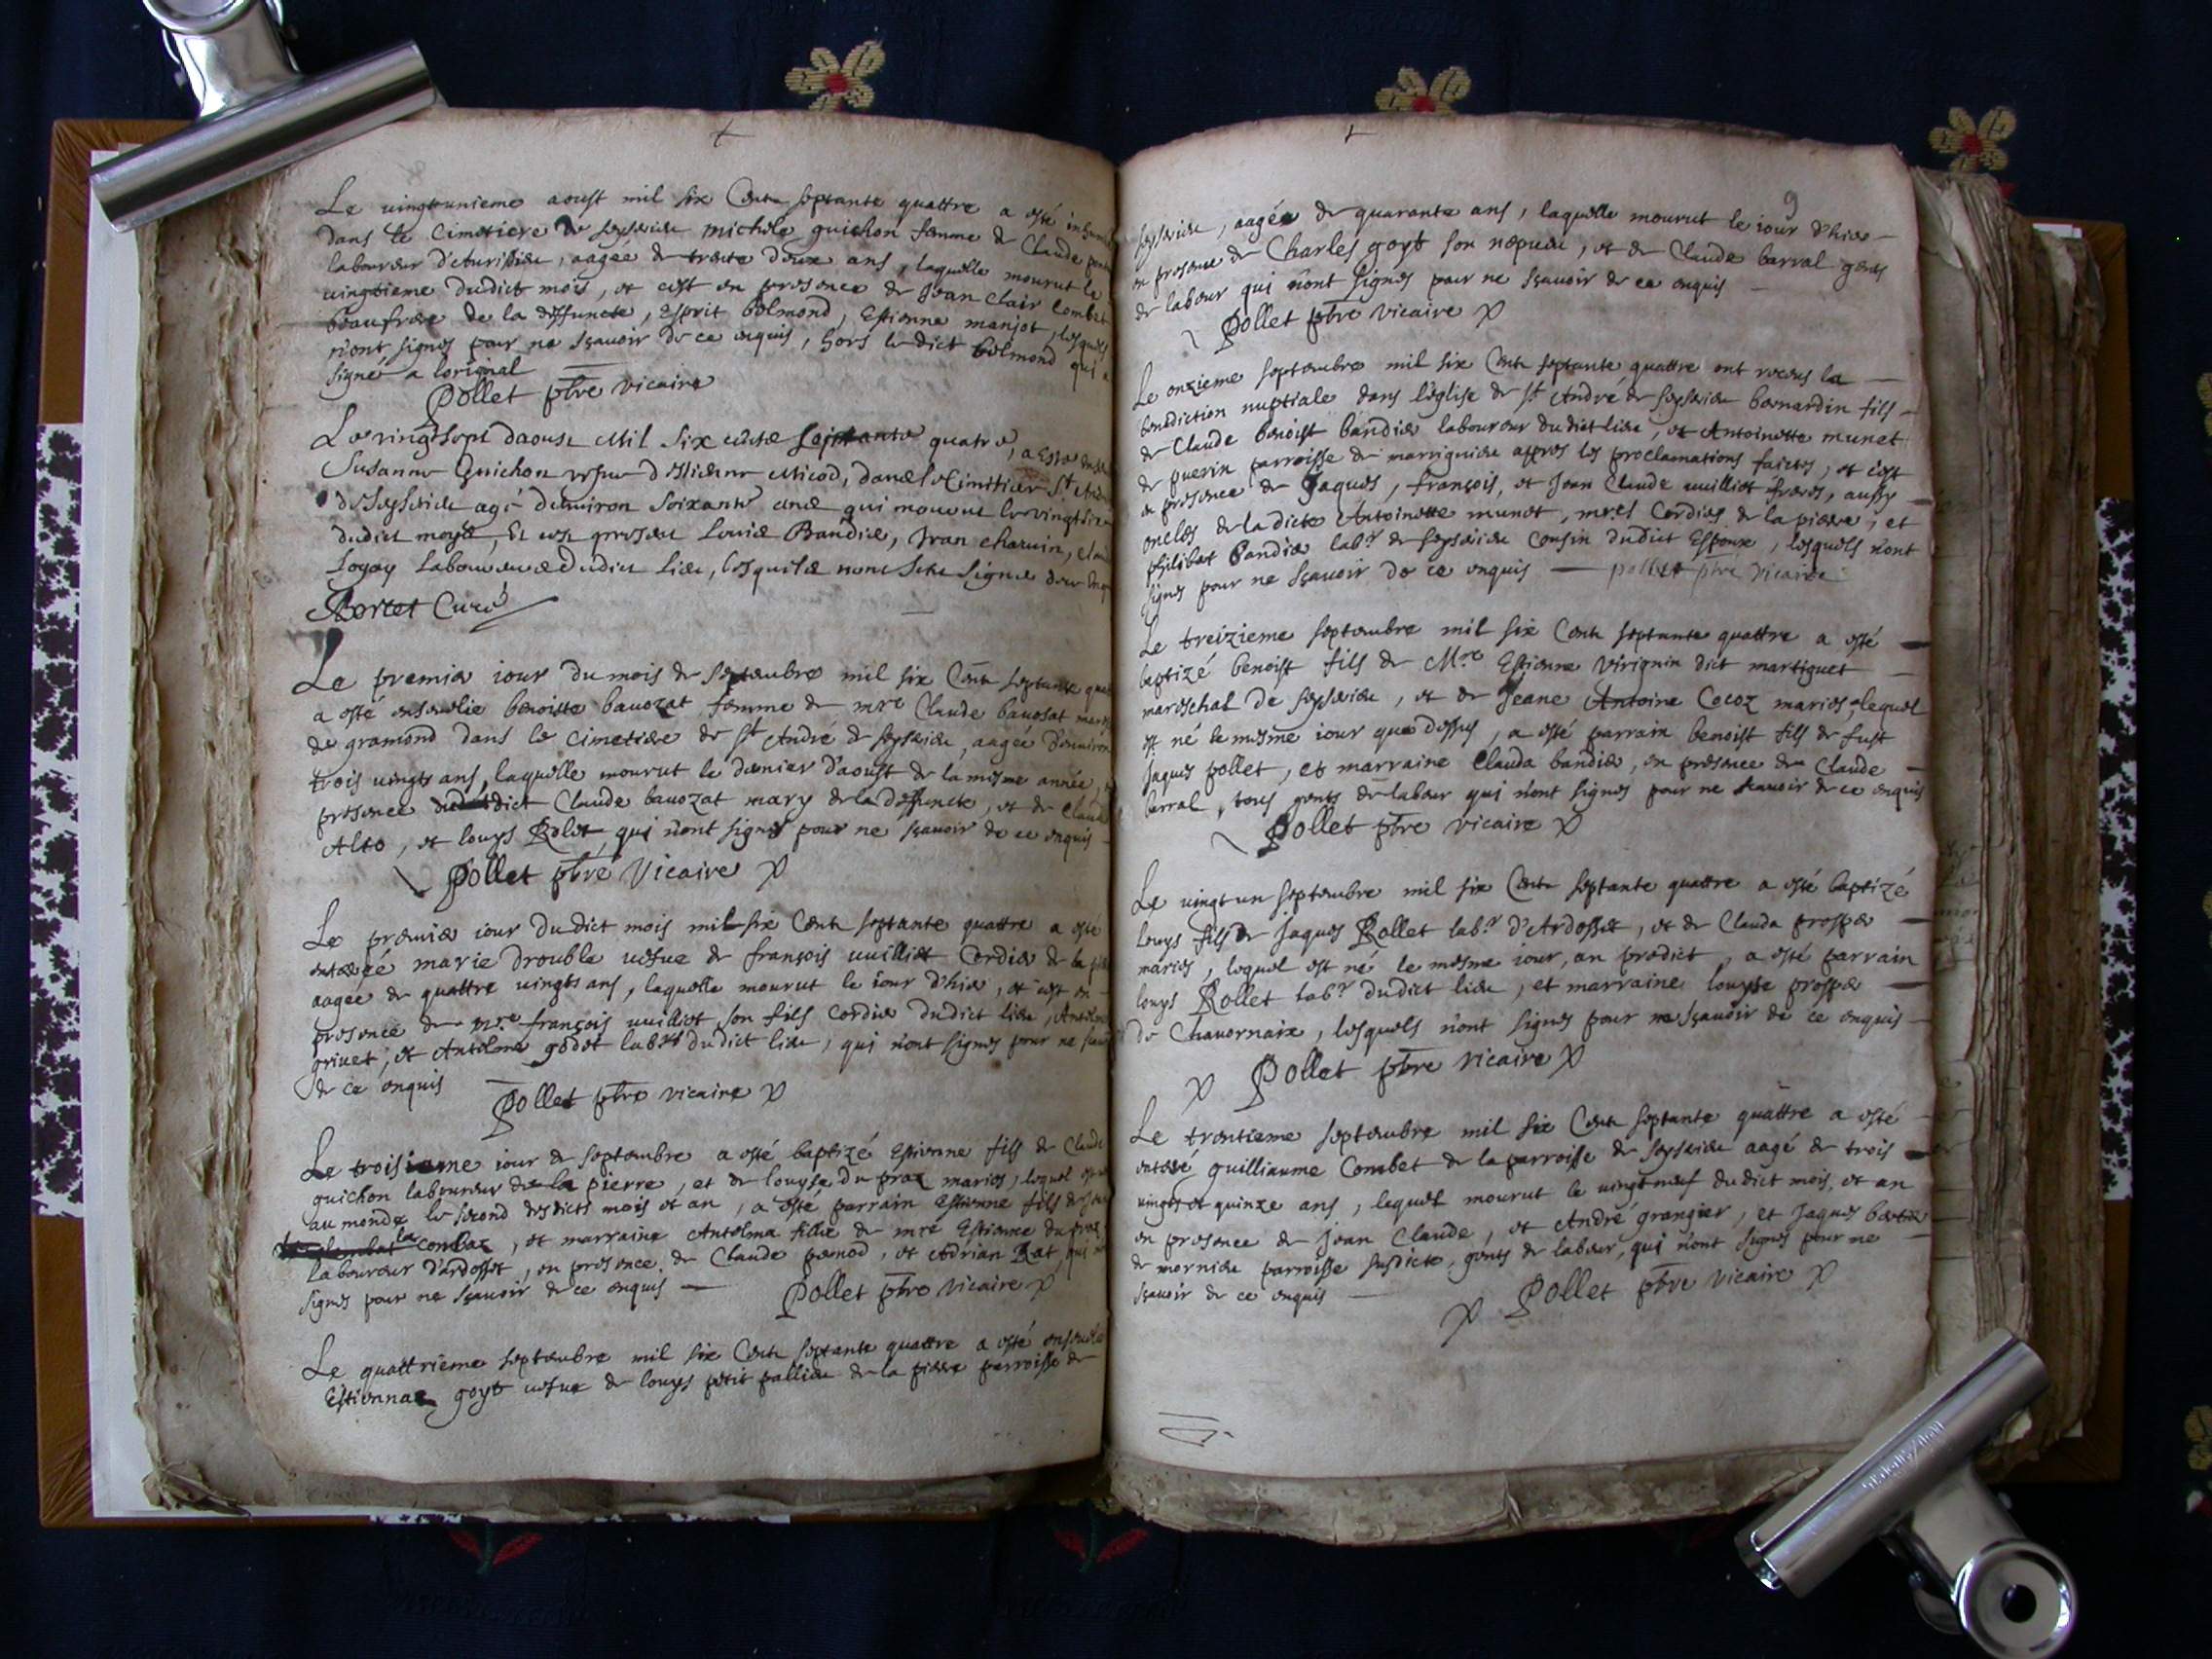 Le vingtunieme aoust mil six Cents septante quattre a esté inhumé
dans le Cimetiere de seyssieu michele guichon femme de Claude
laboureur aagée de trante deux ans, laquelle mourut le
vingtieme dudict mois, et c'est en presence de Jean Clair Combet
beaufrere de la deffuncte, Esprit bolmond, Estienne manjot, lesquels
n'ont signes pour ne sçavoir de ce enquis, hors le dict bolmond qui a
signé a lorignal
Pollet pbre vicaire
Le vingt sept daoust Mil Six cents septante quatre, a esté
Susanne Guichon vefve d'Estienne Micod, dans le Cimitiere St
de Seyssieu agé denviron soixante ans qui mourut le vingtsix
dudict moys, Et en presence Louis Bandier, Jean charvin,
Logay Laboureurs dudict lieu, lesquels nont sceu signer
Bortet Curé
Le premier iour du mois de septembre mil six Cents septante
a esté ensevelie benoiste bavozat femme de mre Claude bavosat
de gramond dans le cimetiere de St André de seyssieu, aagée d'environ
trois vingts ans, laquelle mourut le dernier d'aoust de la mesme année,
presence dudict Claude bavozat mary de la deffuncte, et de Claude
Alto, et louys Rolet, qui n'ont signes pour ne sçavoir de ce enquis
Pollet pbre Vicaire
Le premier iour dudict mois mil six Cents septante quattre a esté
enterré marie Drouble vefue de françois vuilliet Cordier de la
aagée de quattre vingts ans, laquelle mourut le iour d'hier, et c'est en
presence de mre françois vuilliet son fils Cordier dudict lieu,
grivet, et Antelme godet labrs dudict lieu, qui n'ont signes pour ne
de ce enquis Pollet pbre vicaire
Le troisieme iour de septembre a esté baptizé Estienne fils de Claude
guichon laboureur de la pierre, et de louyse du praz maries, lequel
au monde le second desdicts mois et an, a esté parrain Estienne fils de
la combaz, et marraine Antelma fillie de mre Estienne du praz
laboureur d'ardosset, en presence de Claude pernod, et Adrian Rat qui
signes pour ne sçavoir de ce enquis Pollet pbre vicaire
Le quattrieme septembre mil six Cents septante quattre a esté
Estiennaz goyt vefue de louys petit pallieu de la pierre parroisse de
9
seyssieu, aagée de quarante ans, laquelle mourut le iour d'hier
en presence de Charles goyt son nepueu, et de Claude barral gents
de labeur qui n'ont signes pour ne sçavoir de ce enquis
Pollet pbre vicaire
Le onzieme septembre mil six Cents septante quattre ont receus la
benediction nuptiale dans l'église de St André de seyssieu bernardin fils
de Claude benoist bandier laboureur dudict lieu, et Antoinette munet
de puerin parroisse de marrignieu appres les proclamations faictes, et c'est
en presence de Jaques, françois, et Jean Claude vuilliet freres, aussy
oncles de la dicte Antoinette munet, mres Cordies de la pierre, et
philibert bandier labr de seyssieu Cousin dudict Espoux, lesquels n'ont
signes pour ne sçavoir de ce enquis pollet pbre vicaire
Le treizieme septembre mil six Cents septante quattre a esté
baptizé benoist fils de Mre Estienne Virignin dict martiguet
mareschal de seyssieu, et de Jeane Antoine Cocoz maries, lequel
est né le mesme iour que dessus, a esté parrain benoist fils de fust
Jaques pollet, et marraine Clauda bandier, en presence de Claude
barral, tous gents de labeur qui n'ont signes pour ne scavoir de ce enquis
Pollet pbre vicaire
Le vingt un septembre mil six Cents septante quattre a esté baptizé
louys fils de Jaques Rollet labr d'Ardosset, et de Clauda prosper
maries, lequel est né le mesme iour, an predict, a esté parrain
louys Rollet labr dudict lieu, et marraine louyse prosper
de Chavornaix, lesquels n'ont signes pour ne sçavoir de ce enquis
Pollet pbre vicaire
Le trentieme septembre mil six Cents septante quattre a esté
enterré guilliaume Combet de la parroisse de seyssieu aagé de trois
vingts et quinze ans, lequel mourut le vingt neuf dudict mois, et an
en presence de Jean Claude, et André grangier, et Jaques
de mornieu parroisse susdicte, gents de labeur, qui n'ont signes pour ne
sçavoir de ce enquis
Pollet pbre vicaire